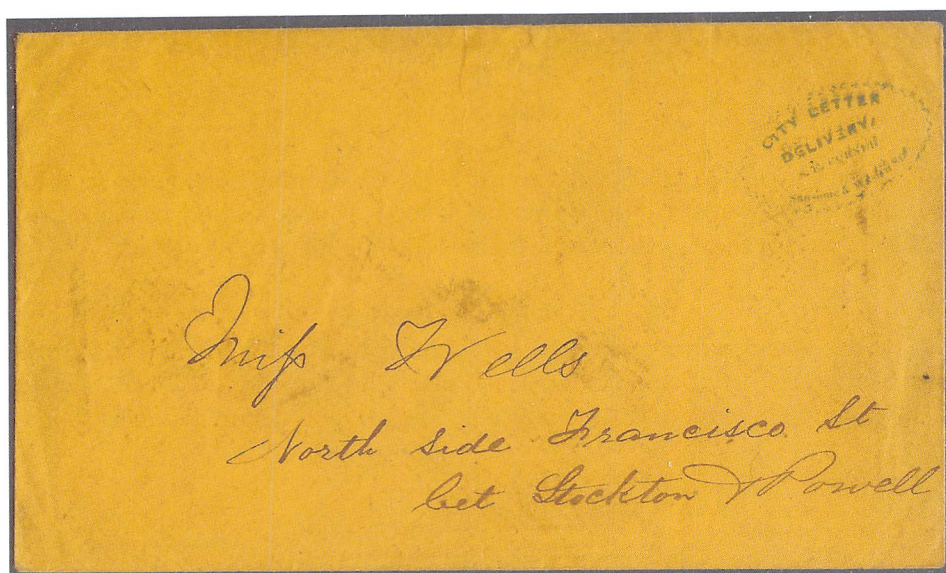 CITY LETTER
DELIVERY,
Sansome &
Miſs Wells
North side Francisco St
bet Stockton & Powell